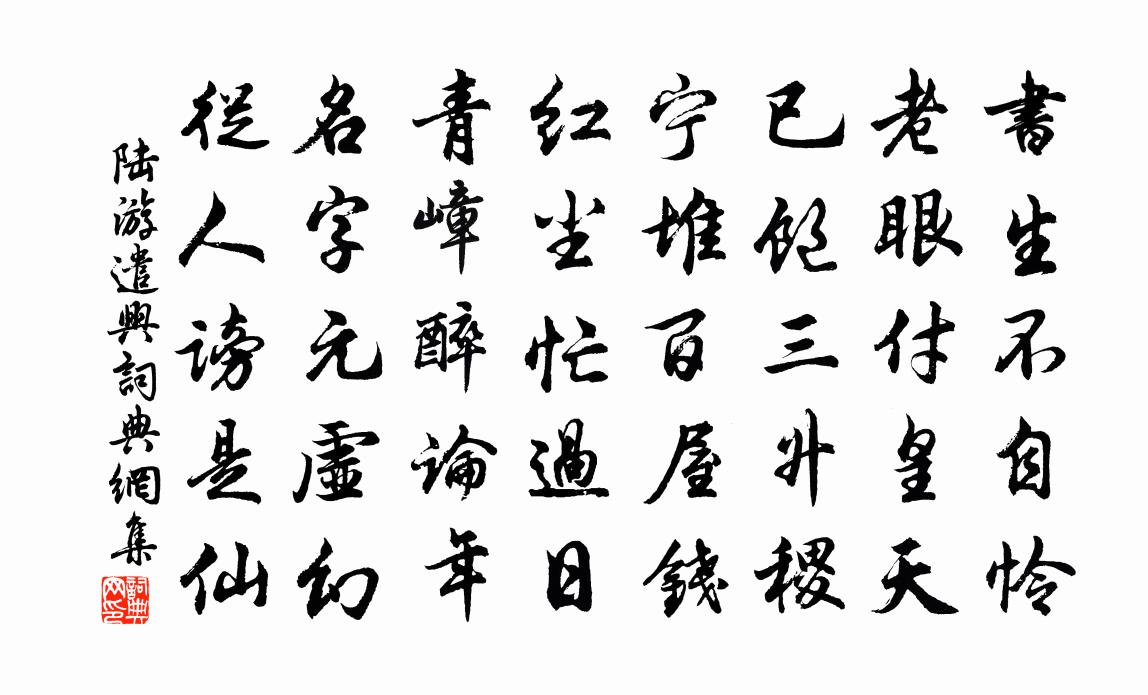 書生不自怜
老眼付皇天
已飽三升稷
宁堆百屋錢
紅尘忙過日
青嶂醉論年
名字元虛幻
從人謗是仙
陆游遣興詞典網集
詞典网印